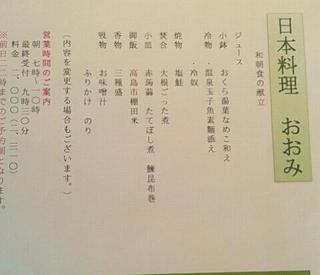 日本料理 おおみ
和朝食の献立
ジュース
小鉢 おくら湯葉なめこ和え
冷物 ・温泉玉子魚素麺添え
・冷奴
焼物 塩鮭
焚合 大根ごった煮
小皿 赤蒟蒻 たてぼし煮 鰊昆布巻
御飯 高島市棚田米
香物 三種盛
吸物 お味噌汁
ふりかけ のり
(内容を変更する場合もございます。)
営業時間のご案内
朝、七時〜一〇時
最終受付 九時三〇分
料金 二、一〇〇(二、三一〇)
※前日二二時までのご予約制となります。